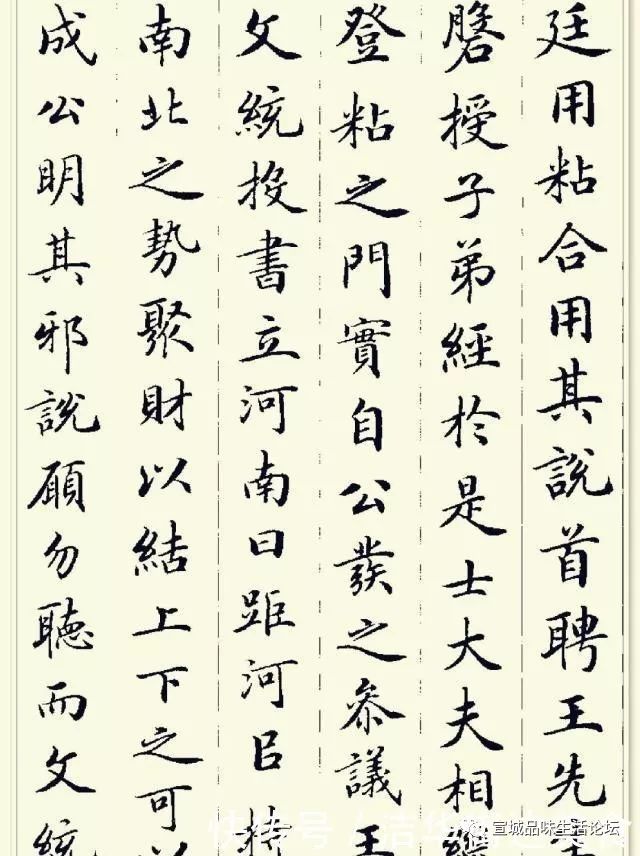 廷用粘合用其說首聘王先
磐授子弟經於是士大夫相繼
登粘之門實自公發之參議王
文統投書立河南曰距河㠯持
南北之勢聚財以結上下之可以
成公明其邪說願勿聽而文統
宣城品味生活论坛
快传号